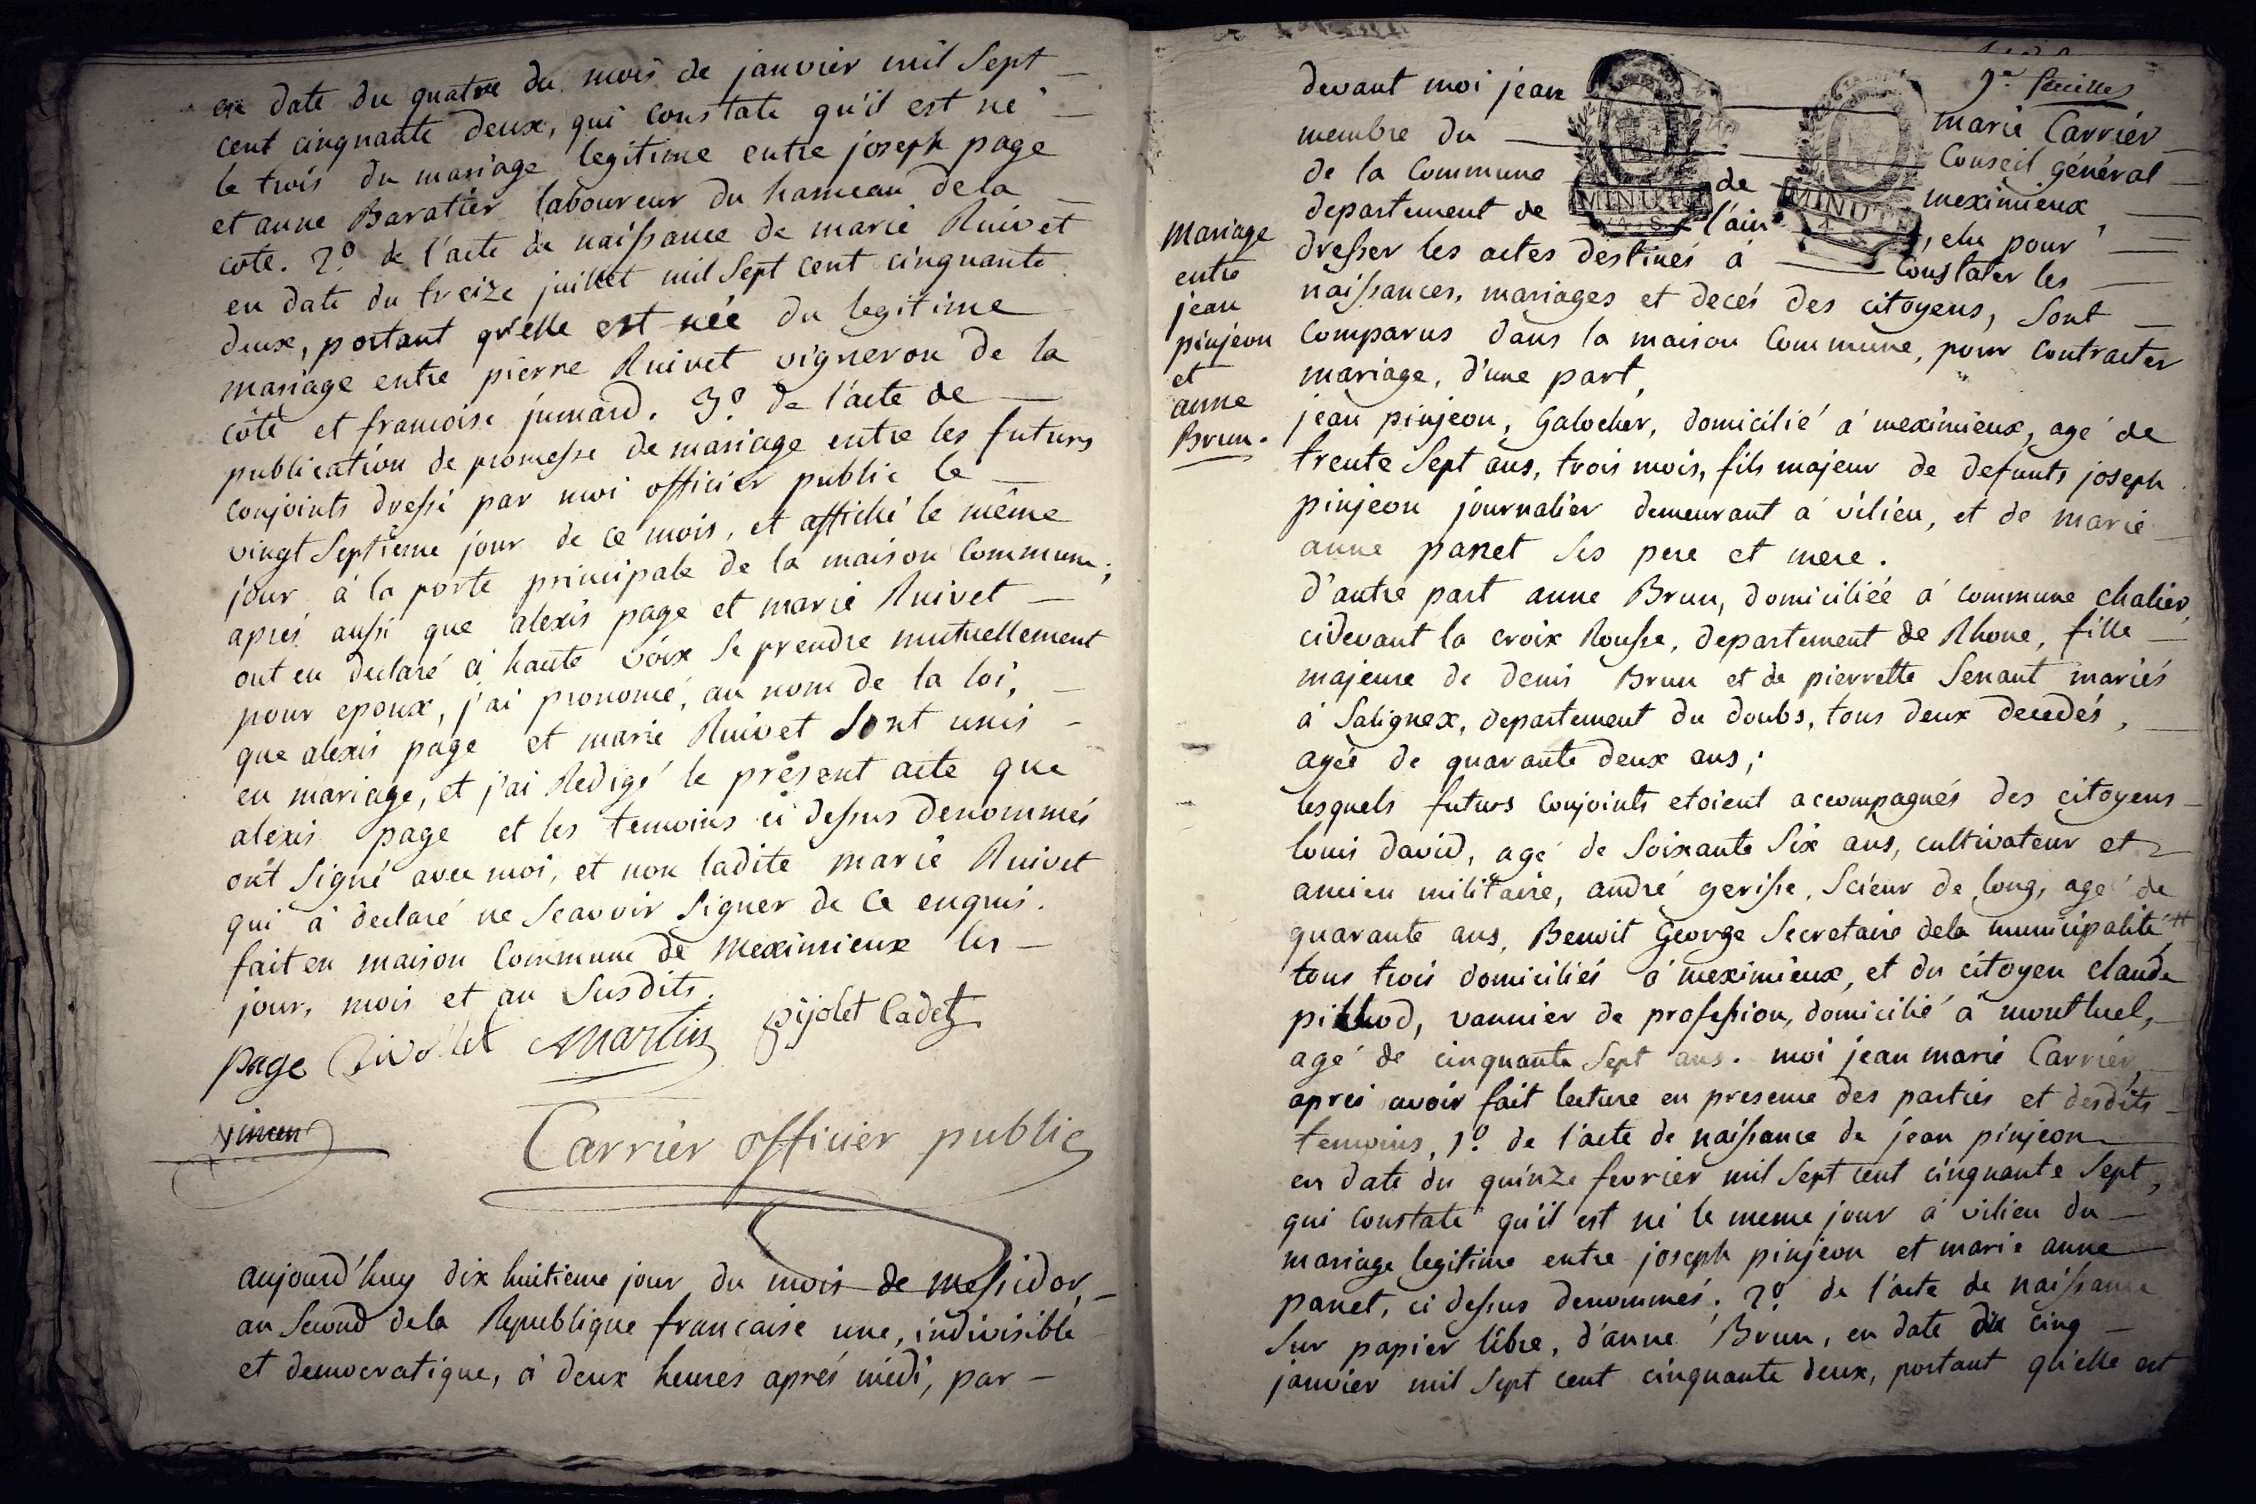 en date du quatre du mois de janvier mil Sept
cent cinquante deux, qui constate qu'il est né
le trois du mariage legitime entre joseph page
et anne Baratier laboureur du hameau dela
cote. 2º de l'acte de naissance de marie Ruivet
en date du treize juillet mil Sept cent cinquante
deux, portant qu'elle est née du legitime
mariage entre pierre Ruivet vigneron de la
côte et francoise jumard. 3º de l'acte de
publication de promesse de mariage entre les futurs
conjoints dressé par moi officier public le
vingt Septieme jour de ce mois, et affiché le même
jour à la porte principale de la maison Commune;
aprés aussi que alexis page et marie Ruivet
ont eu declaré à haute voix Se prendre mutuellement
pour epoux, j'ai prononcé, au nom de la loi,
que alexis page et marie Ruivet Sont unis
en mariage, et j'ai Redigé le present acte que
alexis page et les temoins ci dessus denommés
ont Signé avec moi, et non ladite marie Ruivet
qui à declaré ne Scavoir Signer de ce enquis.
fait en maison Commune de meximieux les
jour, mois et an Susdits.
page Martin pijolet Cadet
Carrier officier public
aujourd'huy dix huitieme jour du mois de messidor,
an Second dela Republique francaise une, indivisible
et democratique, à deux heures aprés midi, par
feuilles
devant moi jean marie Carrier
membre du Conseil général
de la Commune de meximieux
departement de l'ain, elu pour
MINUTE MINUTE
dresser les actes destinés à Constater les
naissances, mariages et decés des citoyens, Sont
Comparus dans la maison Commune, pour Contracter
mariage, d'une part,
Mariage
entre
jean
pinjeon
et
anne
Brun.
jean pinjeon, Galocher, domicilié à meximieux, agé de
trente Sept ans, trois mois, fils majeur de defunts joseph
pinjeon journalier demeurant à vilieu, et de marie
anne panet Ses pere et mere.
d'autre part anne Brun, domiciliée à commune chalier,
cidevant la croix Rousse, departement de Rhone, fille
majeure de denis Brun et de pierrette Senaut mariés
à Salignex, departement du doubs, tous deux decedés,
agée de quarante deux ans;
lesquels futurs Conjoints etoient accompagnés des citoyens
louis david, agé de Soixante Six ans, cultivateur et
ancien militaire, andré gerisse, Scieur de long, agé de
quarante ans, Benoit George Secretaire dela municipalité #
tous trois domiciliés à meximieux, et du citoyen claude
pithod, vannier de profession, domicilié à montluel,
agé de cinquante Sept ans. moi jean marie Carrier,
aprés avoir fait lecture en presence des parties et desdits
temoins, 1º de l'acte de naissance de jean pinjeon
en date du quinze fevrier mil Sept cent cinquante Sept,
qui Constate qu'il est né le meme jour à vilieu du
mariage legitime entre joseph pinjeon et marie anne
panet, ci dessus denommés. 2º de l'acte de naissance
Sur papier libre, d'anne Brun, en date du cinq
janvier mil Sept cent cinquante deux, portant qu'elle est